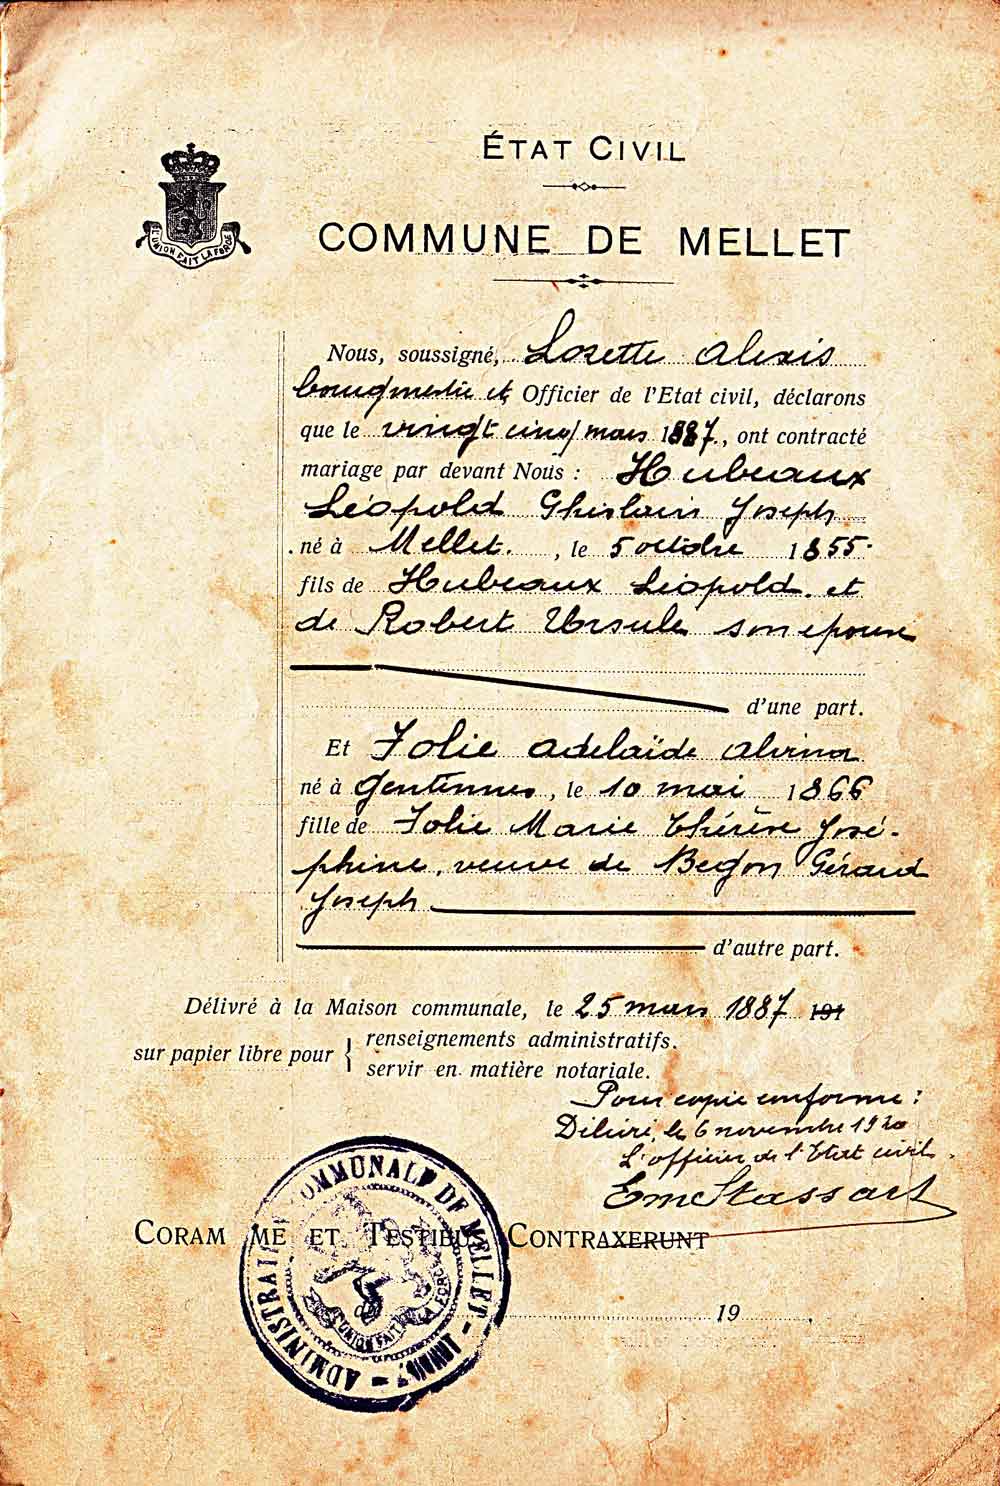 L'UNION FAIT LA FORCE
ÉTAT CIVIL
COMMUNE DE MELLET
Nous, soussigné, Lozette Alexis
bourgmestre et Officier de l'Etat civil, déclarons
que le vingt cinq mars 1887, ont contracté
mariage par devant Nous : Hubeaux
Léopold Ghislain Joseph
né à Mellet. , le 5 octobre 1855.
fils de Hubeaux Léopold. et
de Robert Ursule son épouse
d'une part.
Et Jolie Adelaïde Alvina
né à Gentinnes, le 10 mai 1866
fille de Jolie Marie Thérèse José-
phine, veuve de Begon Gérard
Joseph
d'autre part.
Délivré à la Maison communale, le 25 mars 1887 191
sur papier libre pour { renseignements administratifs.
servir en matière notariale.
Pour copie conforme :
Délivré, le 6 novembre 1920
L'officier de l'Etat civil.
Em Stassart
CORAM ME ET TESTIBUS CONTRAXERUNT
19
ADMINISTRATION COMMUNALE DE MELLET
L'UNION FAIT LA FORCE